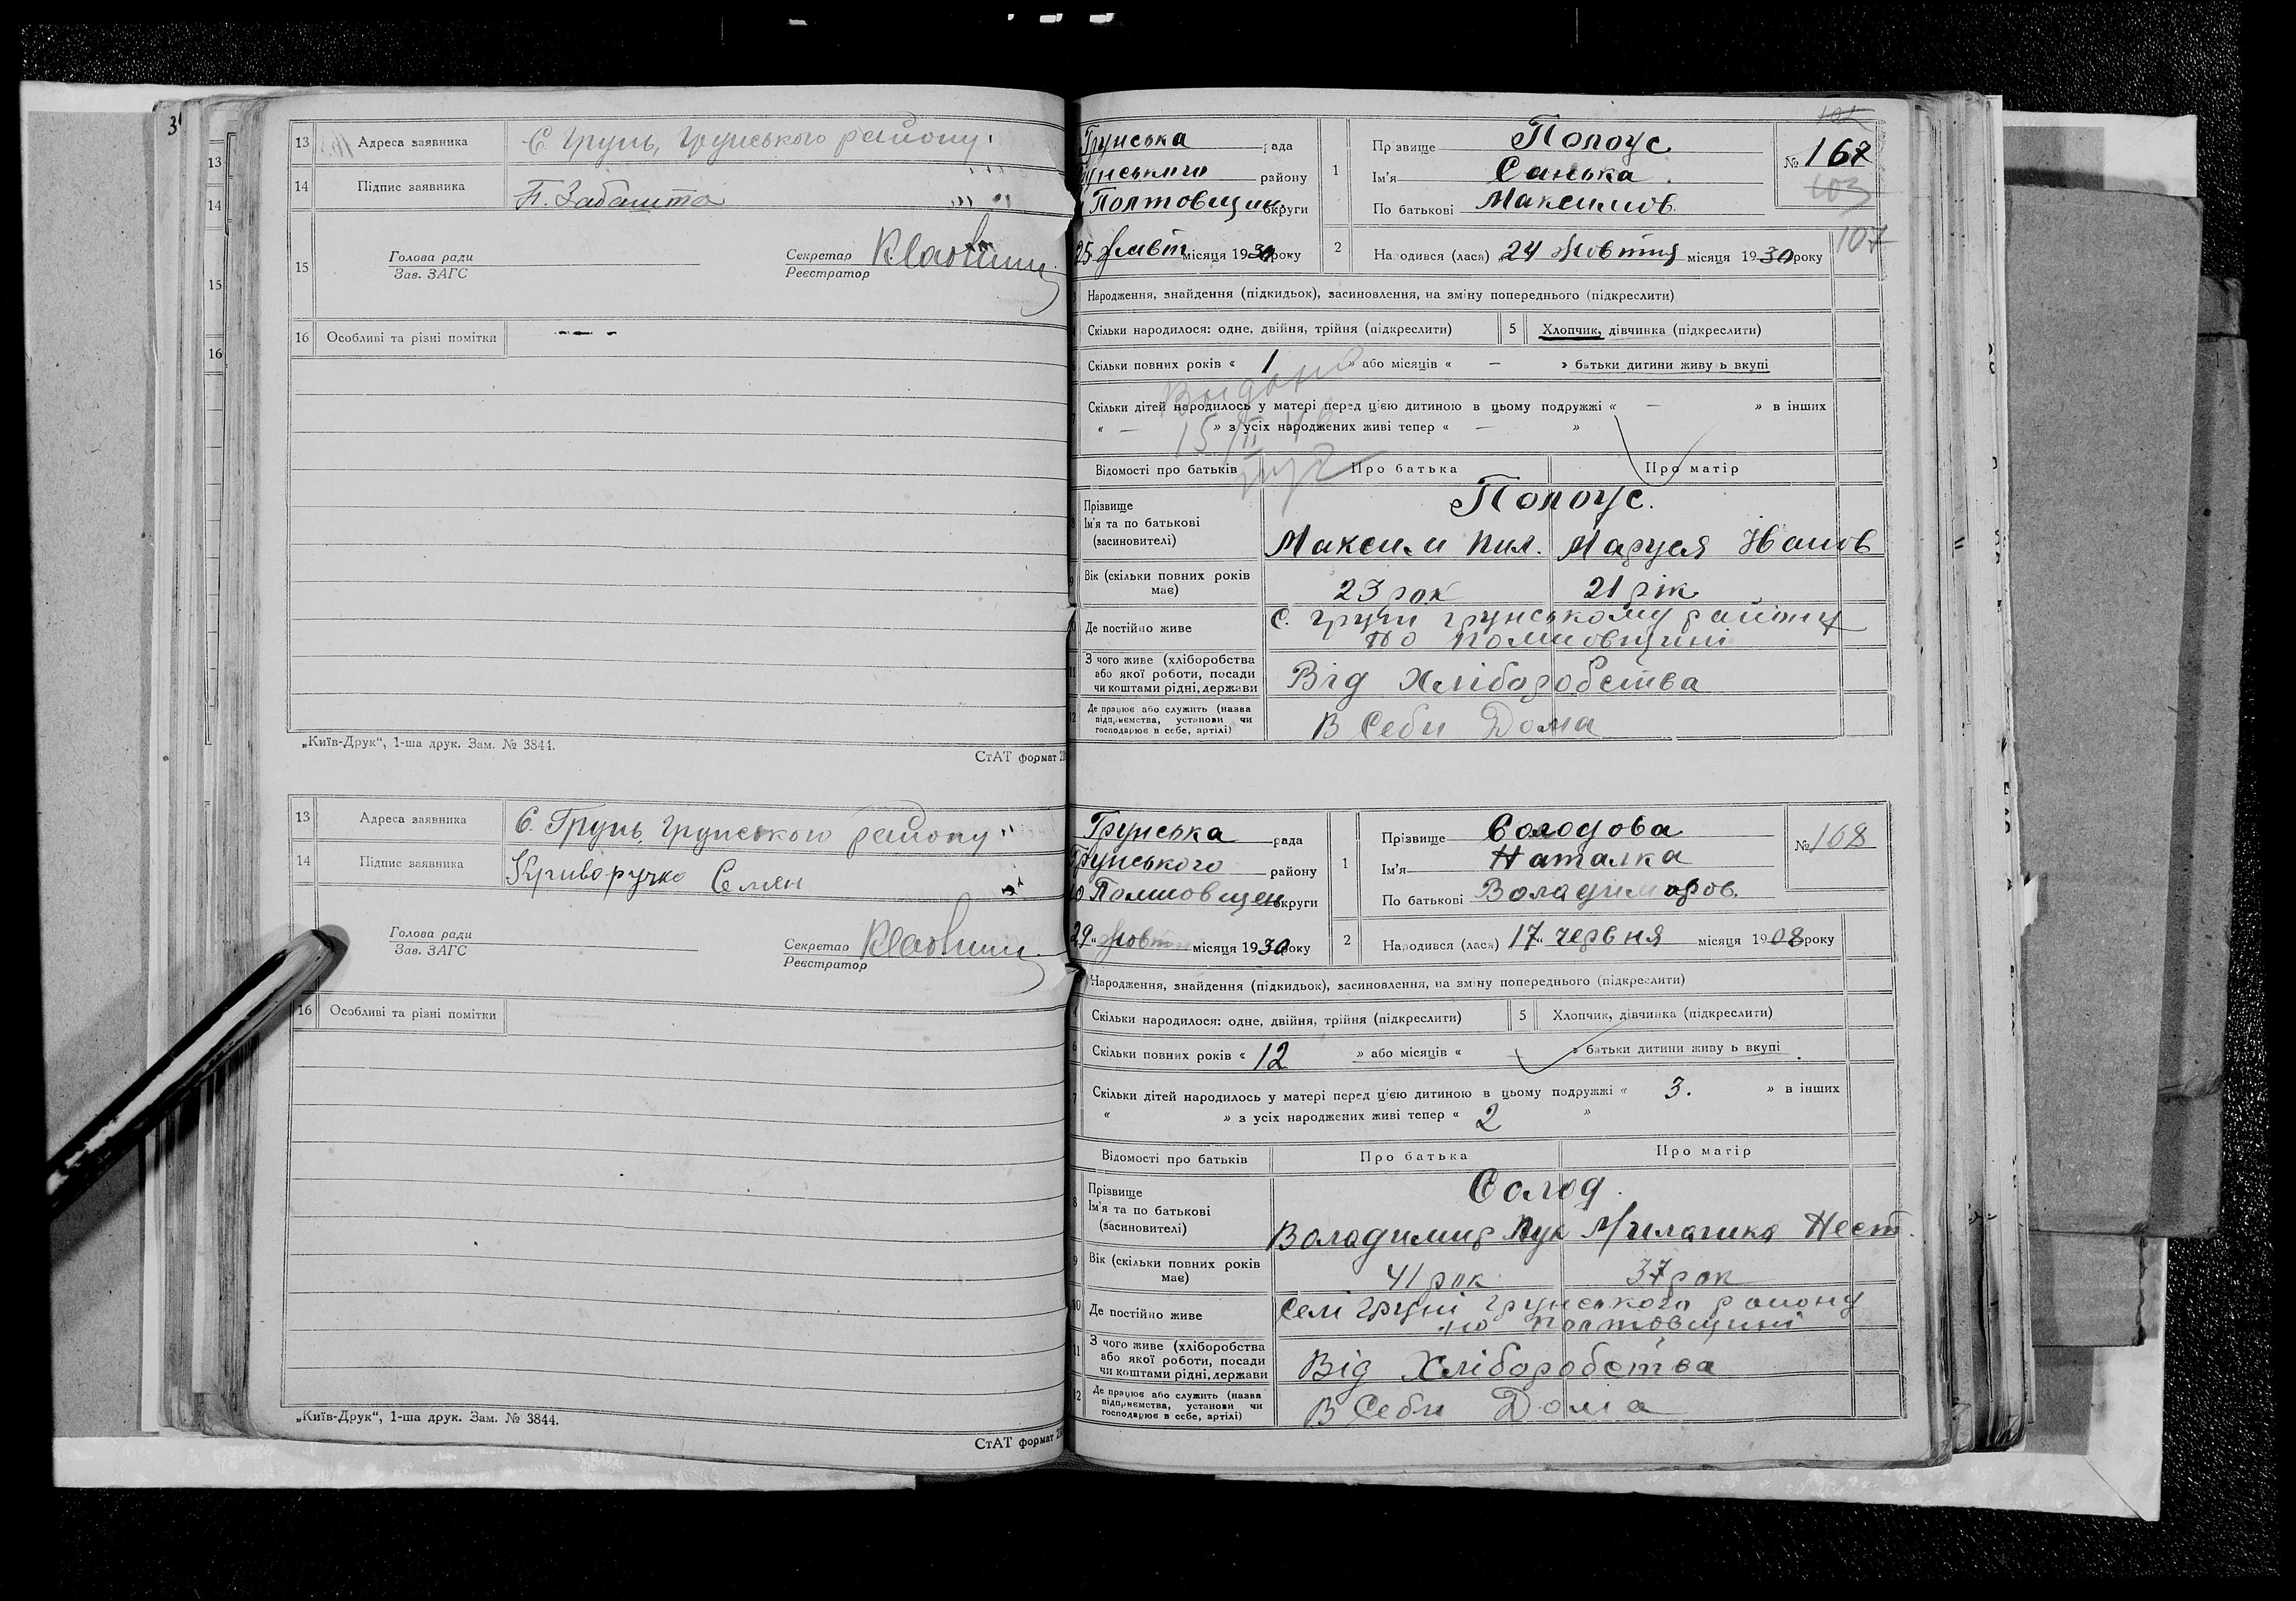 3
13
14
15
16
13 Адреса заявника С. Грунь, Грунського району
14 Підпис заявника П. Забашта
15 Голова ради
Зав. ЗАГС
Секретар
Реєстратор
16 Особливі та різні помітки — — -
„Київ-Друк“, 1-ша друк. Зам. № 3844.
СтАТ формат
13 Адреса заявника С. Грунь, Грунського району
14 Підпис заявника Криворучко Семен
Голова ради
Зав. ЗАГС
Секретар
Реєстратор
16 Особливі та різні помітки
„Київ-Друк“, 1-ша друк. Зам. № 3844.
СтАТ формат
Грунська рада
району
Полтовщин округи
25 Жовт місяця 1930 року
1 Прізвище Попоус
Ім'я Санька
По батькові Максимов.
№ 167
103
107
2 Народився (лася) 24 Жовтня місяця 1930 року
Народження, знайдення (підкидьок), засиновлення, на зміну попереднього (підкреслити)
Скільки народилося: одне, двійня, трійня (підкреслити) 5 Хлопчик, дівчинка (підкреслити)
Скільки повних років « 1 » або місяців « — » батьки дитини живуть вкупі
Скільки дітей народилось у матері перед цією дитиною в цьому подружжі « — » в інших
« — » з усіх народжених живі тепер « — »
Відомості про батьків Про батька Про матір
Прізвище
Ім'я та по батькові
(засновителі)
Попоус.
Максим Пил. Маруся Іванов
Вік (скільки повних років
має)
23 рок 21 рік
Де постійно живе
С. Груні Грунському району
по Полтовщині
11 З чого живе (хліборобства
або якої роботи, посади
чи коштами рідні, держави
Від Хліборобства
12 Де працює або служить (назва
підприємства, установи чи
господарює в себе, артілі)
В Себи Дома
Грунська рада
Грунського району
по Полтовщен округи
29 Жовт місяця 1930 року
1 Прізвище Солодова
Ім'я Наталка
По батькові Володимиров.
№ 168
2 Народився (лася) 17 червня місяця 1908 року
Народження, знайдення (підкидьок), засиновлення, на зміну попереднього (підкреслити)
Скільки народилося: одне, двійня, трійня (підкреслити) 5 Хлопчик, дівчинка (підкреслити)
6 Скільки повних років « 12 » або місяців « » батьки дитини живуть вкупі
7 Скільки дітей народилось у матері перед цією дитиною в цьому подружжі « 3. » в інших
« » з усіх народжених живі тепер « 2 »
Відомості про батьків Про батька Про матір
8 Прізвище
Ім'я та по батькові
(засиновителі)
Солод.
Володимир Лук Милашка Нест.
9 Вік (скільки повних років
має)
41 рок 37 рок
10 Де постійно живе
Селі Груні Грунського району
по Полтовщині
11 З чого живе (хліборобства
або якої роботи, посади
чи коштами рідні, держави
Від Хліборобства
12 Де працює або служить (назва
підприємства, установи чи
господарює в себе, артілі)
В Себи Дома